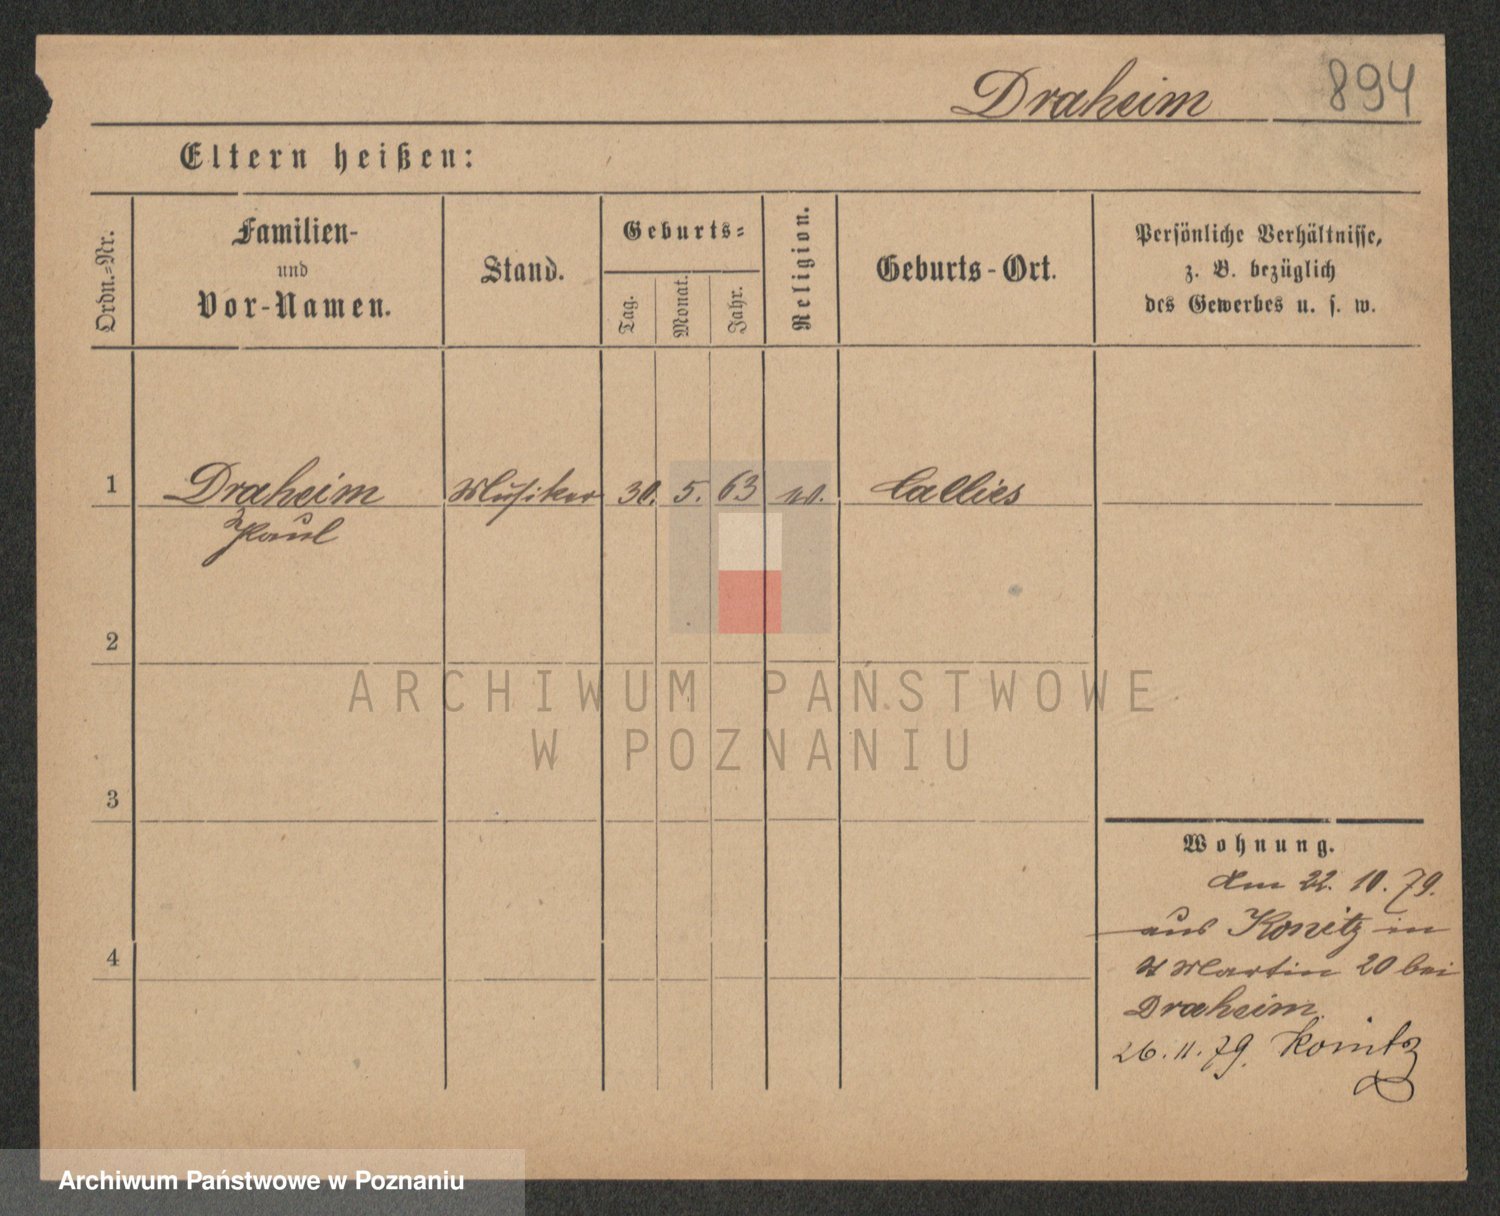 Draheim 894
Eltern heißen:
Ordn.=Nr.
Familien-
und
Vor-Namen.
Stand.
Geburts=
Tag.
Monat.
Jahr.
Religion.
Geburts-Ort.
Persönliche Verhältnisse,
z. B. bezüglich
des Gewerbes u. s. w.
1 Draheim Musiker 30. 5. 63 Callies
Paul
2
ARCHIWUM PAŃSTWOWE
W POZNANIU
3
Wohnung.
Am 22. 10. 79.
aus Konitz in
St Martin 20 bei
4
Draheim.
26. 11. 79. Konitz
Archiwum Państwowe w Poznaniu